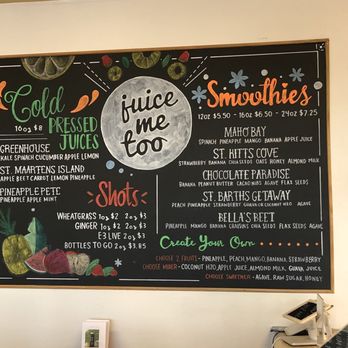 Cold
PRESSED
JUICES
16oz $8
GREENHOUSE
KALE SPINACH CUCUMBER APPLE LEMON
ST. MAARTENS ISLAND
APPLE BEET CARROT LEMON PINEAPPLE
PINEAPPLE PETE
PINEAPPLE APPLE MINT
juice
me
too
Shots
WHEATGRASS 1oz $2 2oz $3
GINGER 1oz $2 2oz $3
E3 LIVE 2oz $3
BOTTLES TO GO 2oz $3.85
Smoothies
12oz $5.50 - 16oz $6.50 - 24oz $7.25
MAHO BAY
SPINACH PINEAPPLE MANGO BANANA APPLE JUICE
ST. KITTS COVE
STRAWBERRY BANANA CHIA SEEDS OATS HONEY ALMOND MILK
CHOCOLATE PARADISE
BANANA PEANUT BUTTER CACAO NIBS AGAVE FLAX SEEDS
ST. BARTHS GETAWAY
PEACH PINEAPPLE STRAWBERRY GUAVA OR COCONUT H2O AGAVE
BELLA'S BEET
PINEAPPLE MANGO BANANA CHIA SEEDS FLAX SEEDS AGAVE
Create Your Own
CHOOSE 2 FRUITS - PINEAPPLE, PEACH, MANGO, BANANA, STRAWBERRY
CHOOSE MIXER - COCONUT H2O, APPLE JUICE, ALMOND MILK, GUAVA JUICE
CHOOSE SWEETNER - AGAVE, RAW SUGAR, HONEY